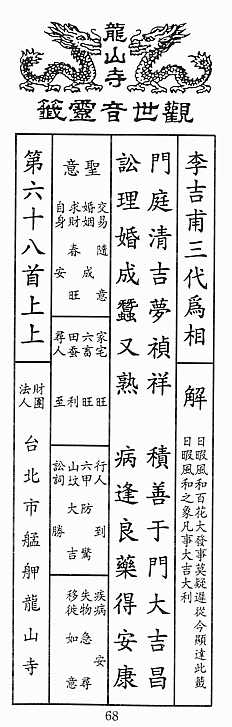 龍山寺
觀世音靈籤
李吉甫三代爲相
解
日暇風和百花大發事莫疑遲從今顯達此籤
日暇風和之象凡事大吉大利
門庭清吉夢禎祥 積善于門大吉昌
訟理婚成蠶又熟 病逢良藥得安康
聖意
交易 隨意
婚姻 成
求財 春旺
自身 安
家宅 旺
六畜 旺
田蚕 利
尋人 至
行人 到
六甲 防驚
山坟 大吉
訟詞 勝
疾病 安
失物 急尋
移徙 如意
第六十八首上上
財團法人
台北市艋舺龍山寺
68